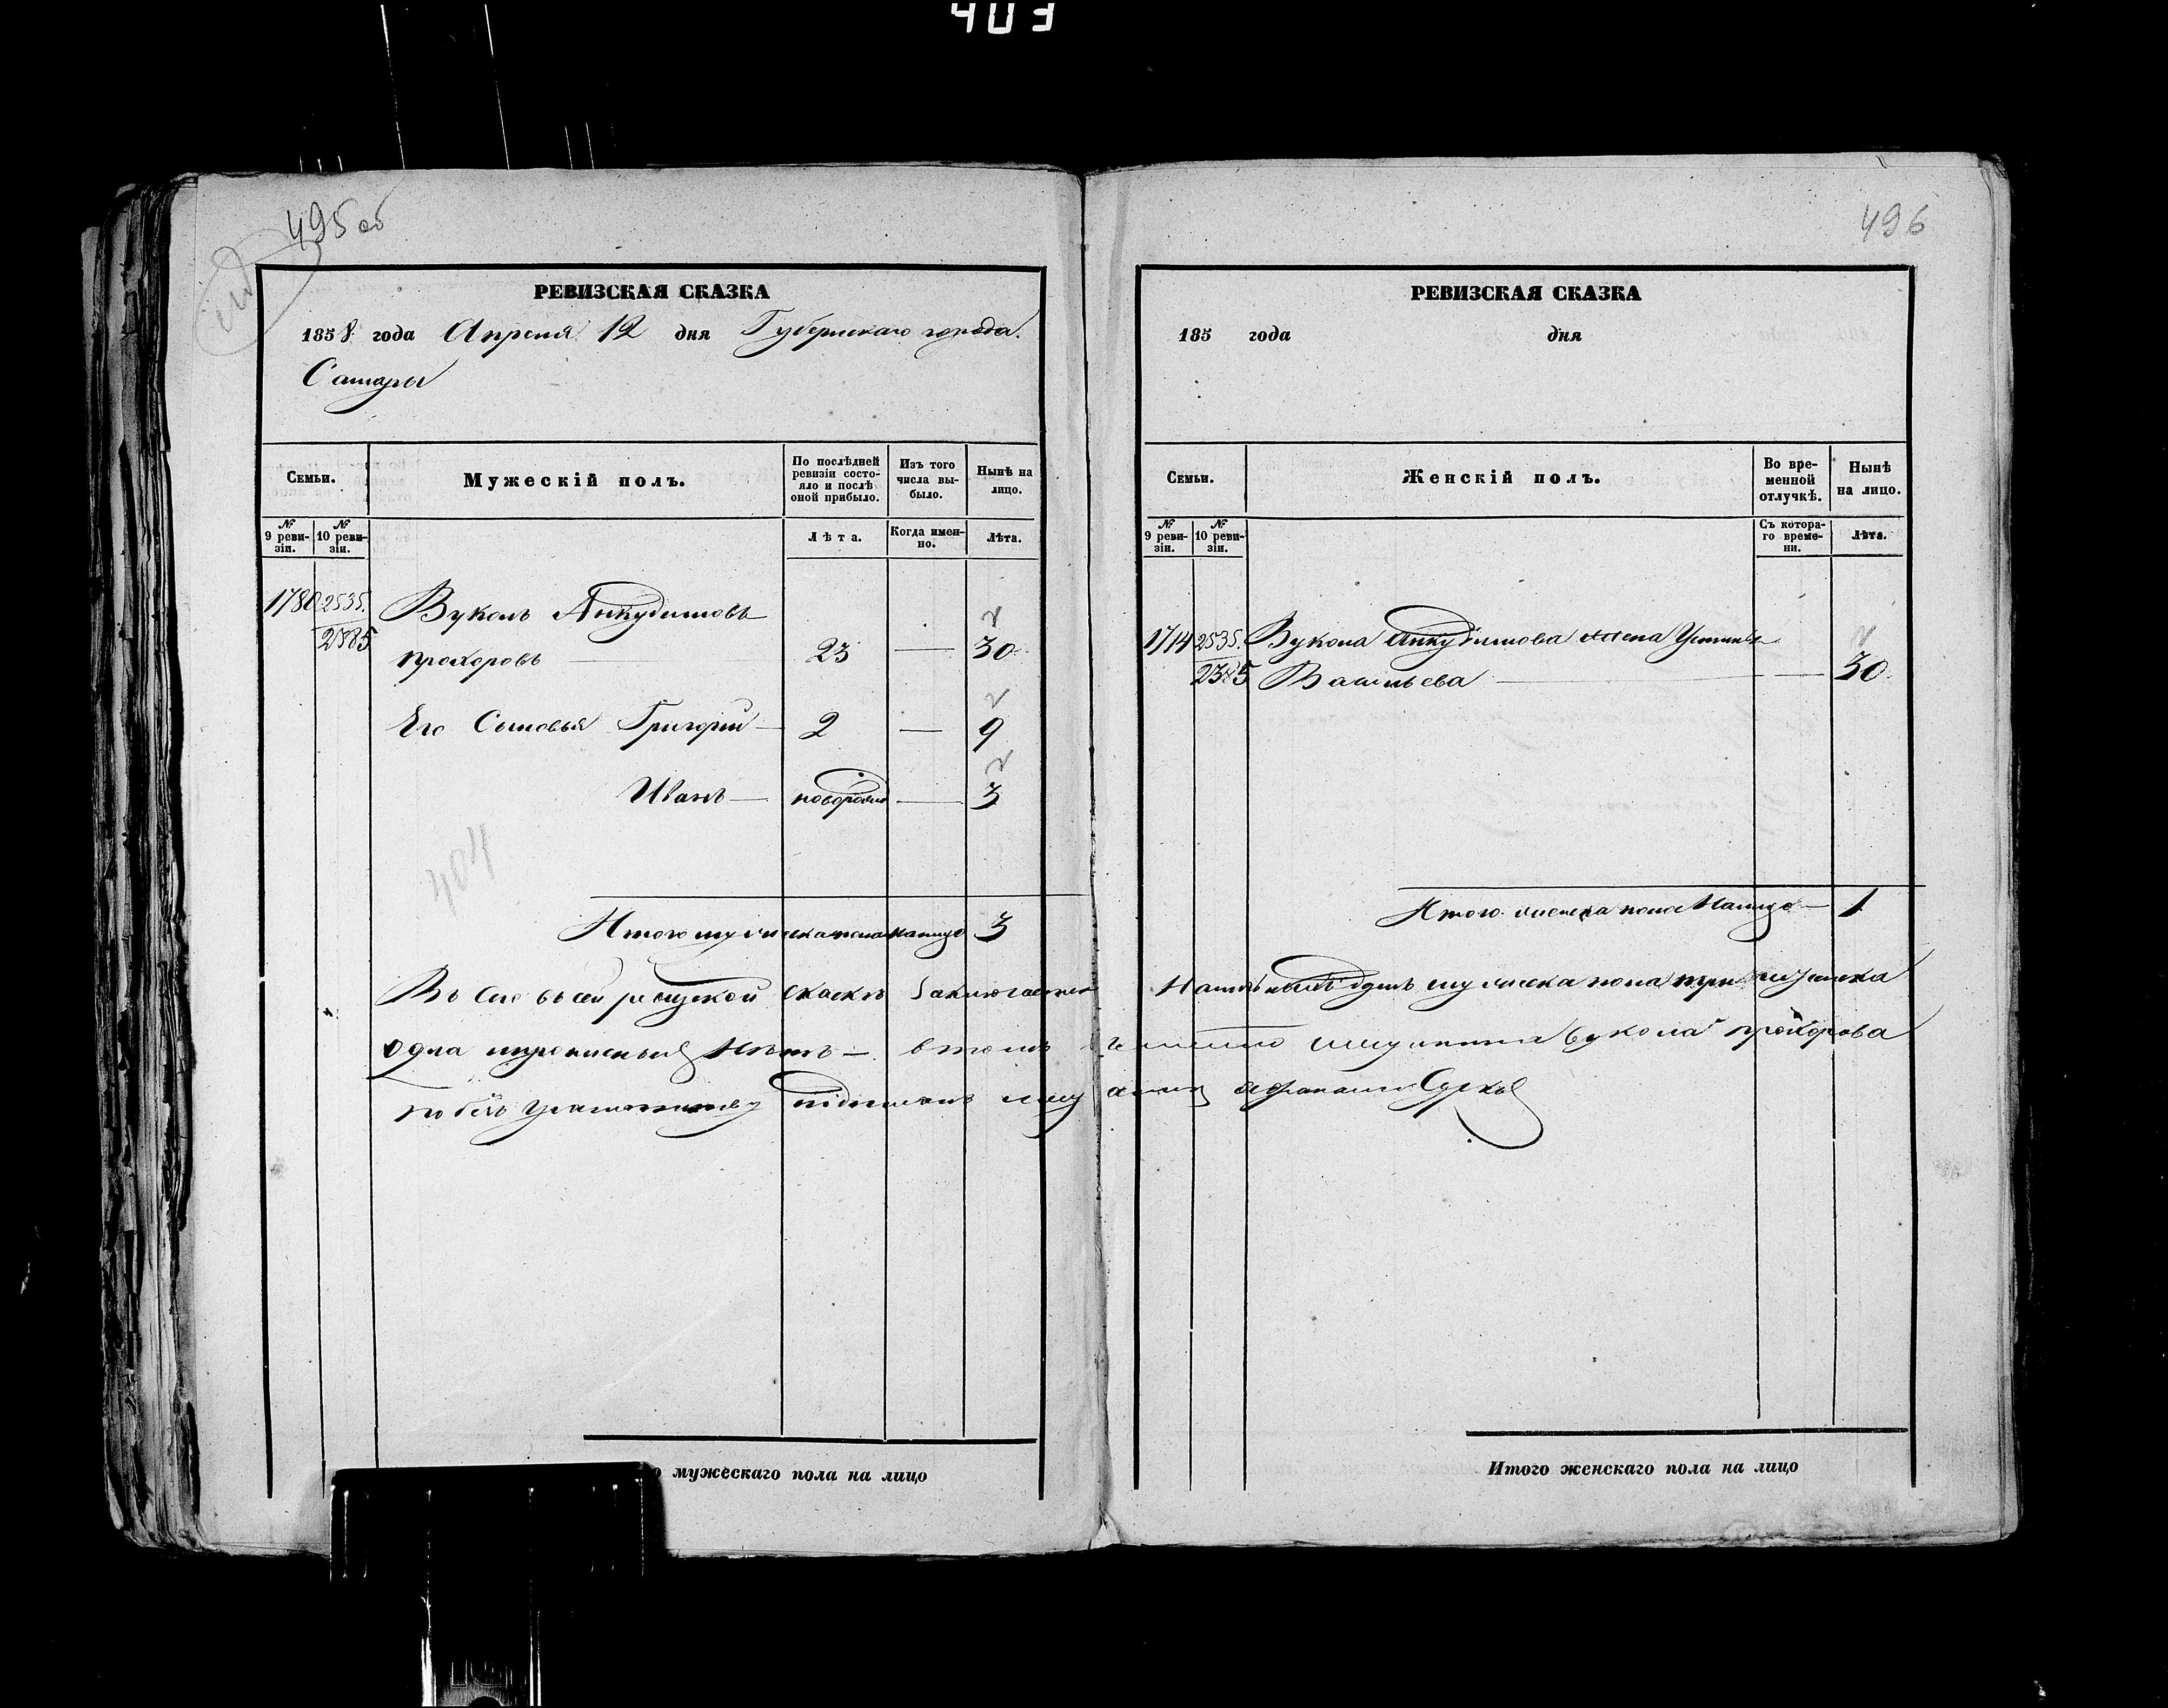 403
495 об
РЕВИЗСКАЯ СКАЗКА
1858 года Апреля 12 дня Губернскаго города
Самары
Семьи.
Мужескій полъ.
По послѣдней ревизіи состояло и послѣ оной прибыло.
Изъ того числа выбыло.
Нынѣ на лицо.
№ 9 ревизіи.
№ 10 ревизіи.
Лѣта.
Когда именно.
Лѣта.
1780 2535. Вуколъ Анкудиновъ
2385 прохоровъ — 23 — 30
Его Сыновья Григорий — 2 — 9
Иванъ — новорожд — 3
404
Итого мужеска пола налицо 3
Въ сей ревизской скаскѣ Заключается
одна прописныхъ Нѣтъ — втомъ
подписалъ
о мужескаго пола на лицо
496
РЕВИЗСКАЯ СКАЗКА
185 года дня
Семьи.
Женскій полъ.
Во временной отлучкѣ.
Нынѣ на лицо.
№ 9 ревизіи.
№ 10 ревизіи.
Съ котораго времени.
Лѣта.
1714 2535. Вукола Анкудинова жена Устинья
2385 Васильева — — 30
Итого женска пола Налицо — 1
Наличныхъ душъ мужеска пола три женска
вукола прохорова
Итого женскаго пола на лицо